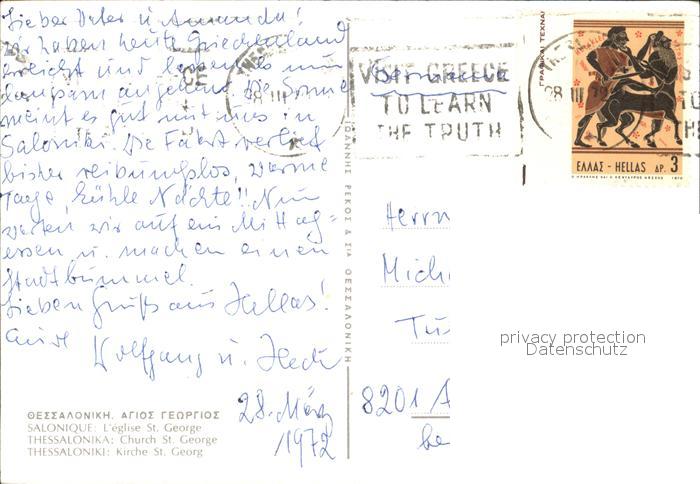 Lieber Peter u. Amanda!
Wir haben heute Griechenland
erreicht und lassen es nun
langsam angehen. Die Sonne
meint es gut mit uns in
Saloniki. Die Fahrt verlief
bisher reibungslos, warme
Tage, kühle Nächte!! Nun
warten wir auf ein Mittag-
essen u. machen einen
Stadtbummel.
Lieben Gruß aus Hellas!
Wolfgang u.
28. März
1972
ΘΕΣΣΑΛΟΝΙΚΗ. ΑΓΙΟΣ ΓΕΩΡΓΙΟΣ
SALONIQUE: L'église St. George
THESSALONIKA: Church St. George
THESSALONIKI: Kirche St. Georg
ΙΩΑΝΝΗΣ ΡΕΚΟΣ & ΣΙΑ ΘΕΣΣΑΛΟΝΙΚΗ
VISIT GREECE
TO LEARN
THE TRUTH
28 III 72
ΕΛΛΑΣ - HELLAS ΔΡ. 3
Herrn
Mich
8201 A
privacy protection
Datenschutz